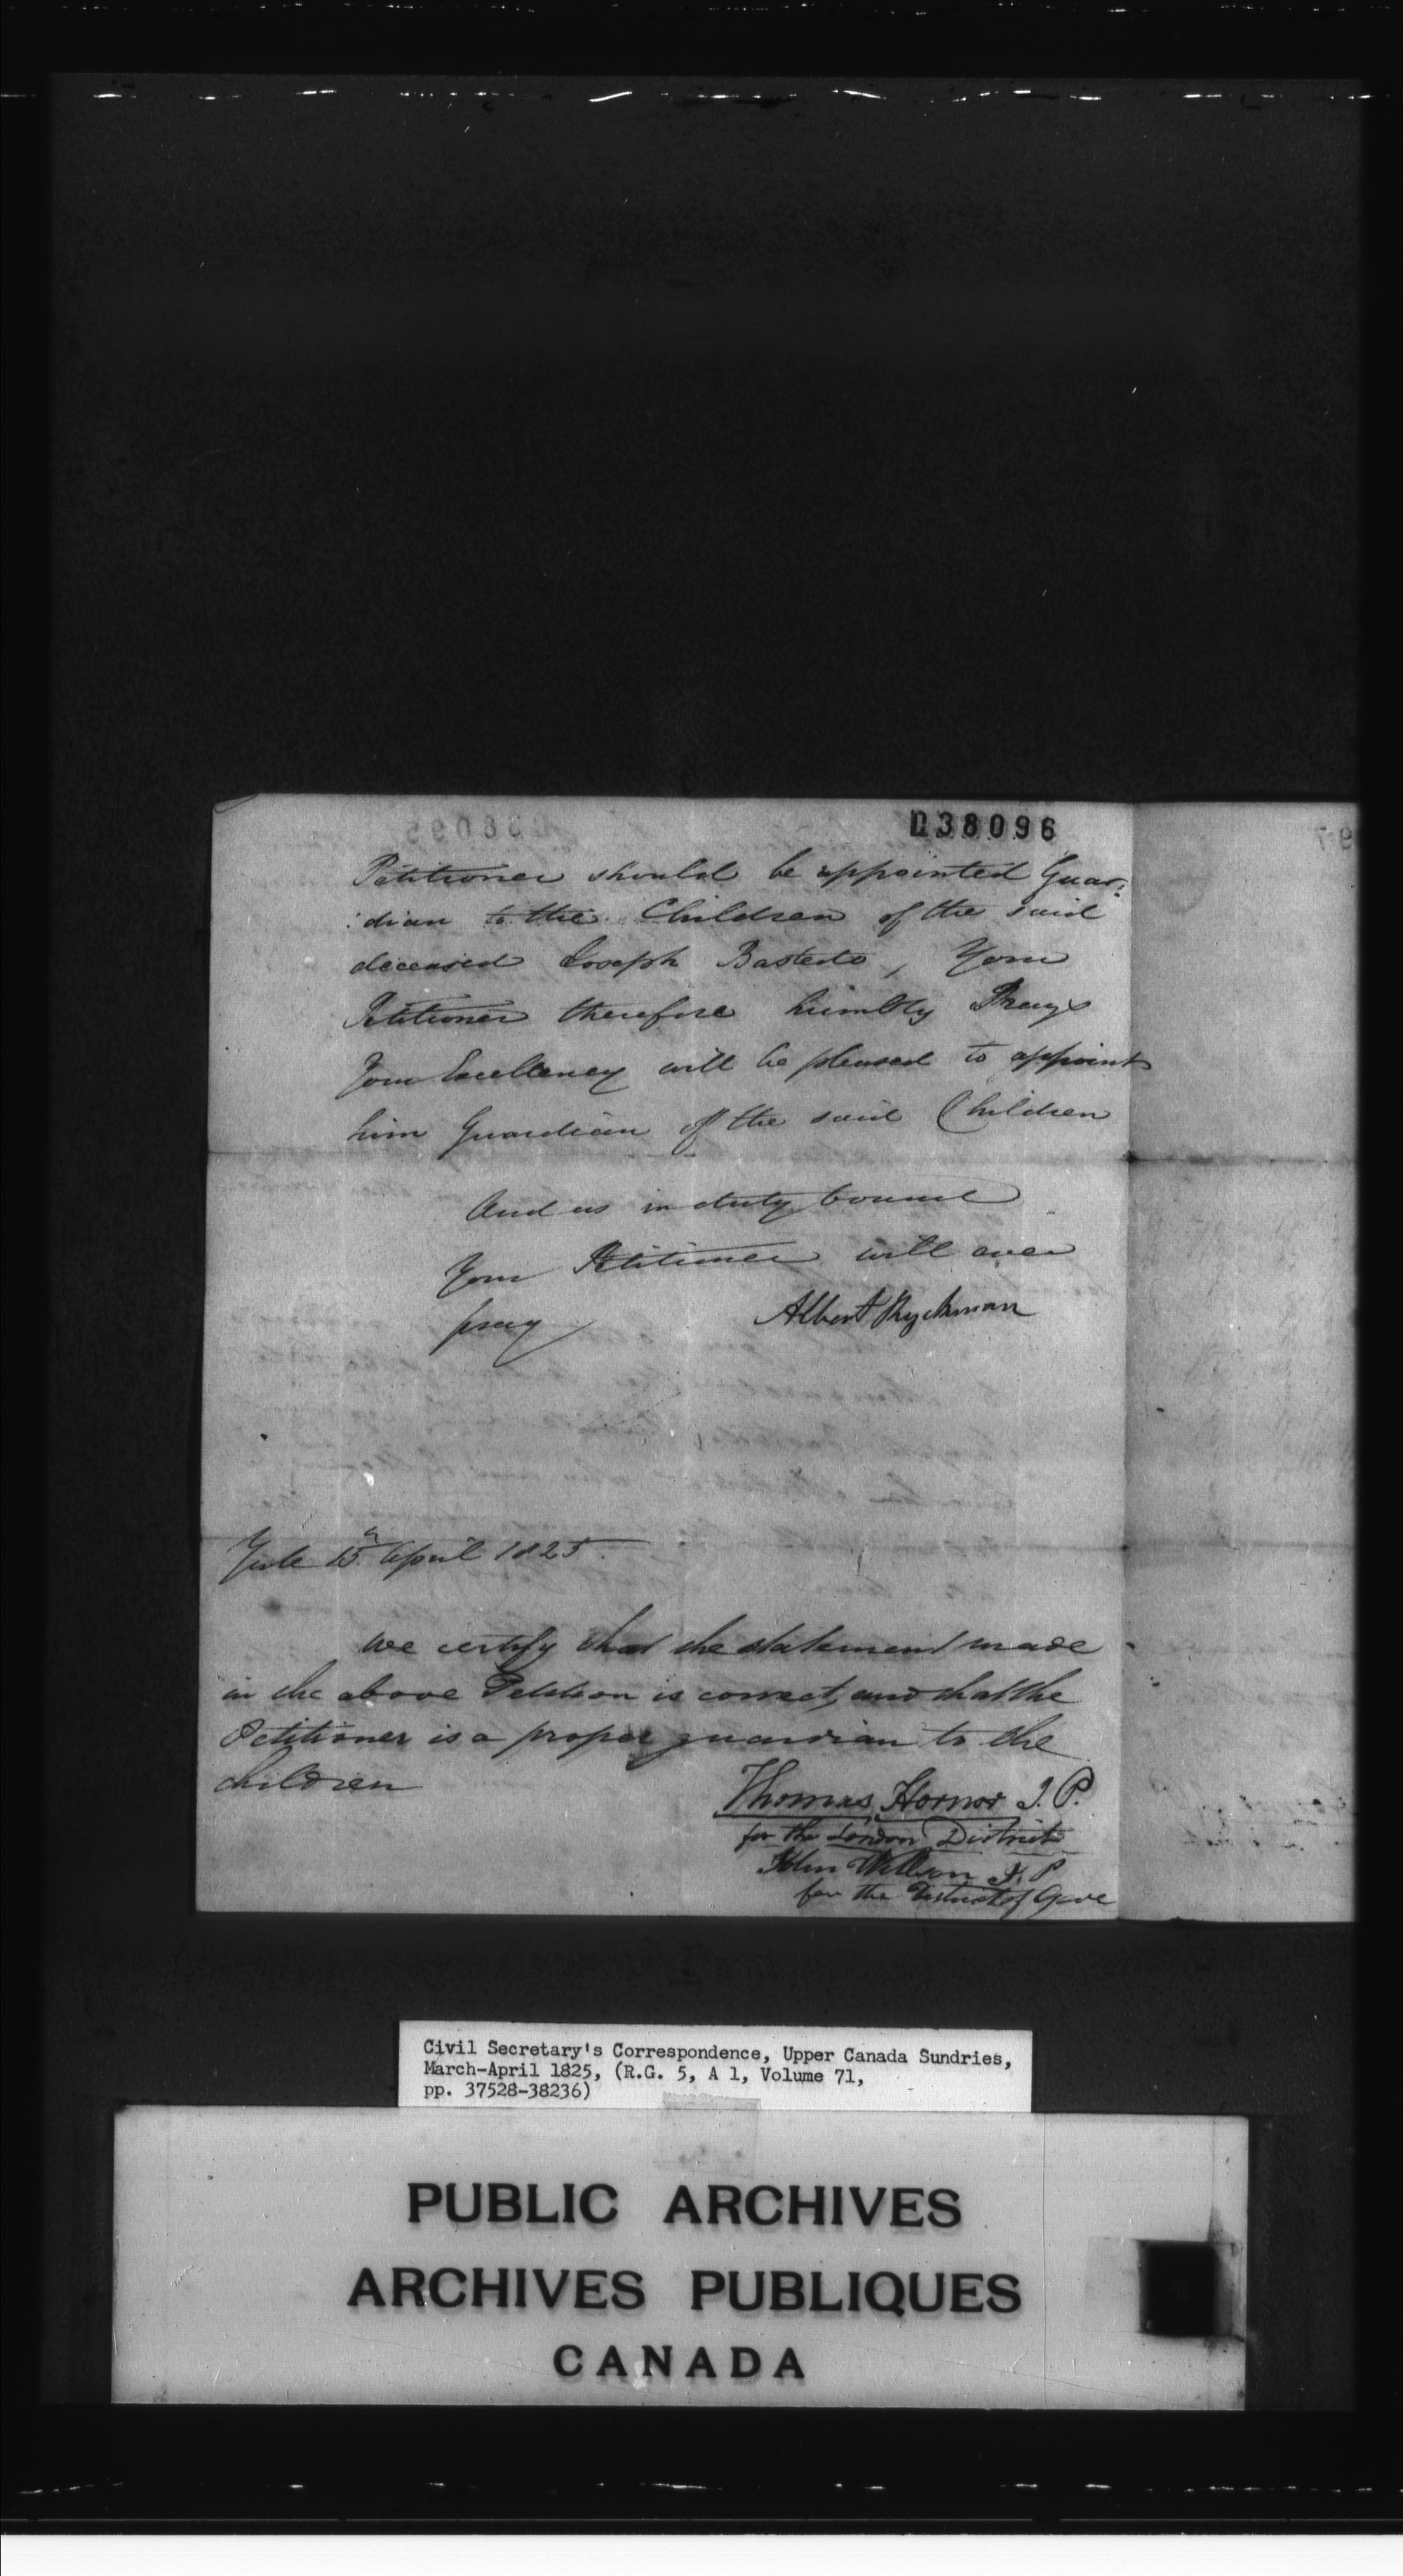 038096
Petitioner should be appointed Guar:
:dian to the Children of the said
deceased Joseph Bastedo, Your
Petitioner therefore humbly Prays
Your Excellency will be pleased to appoint
him Guardian of the said Children
And as in duty bound
Your Petitioner will ever
pray
Albert Ryckman
15th April 1825.
We certify that the statement made
in the above Petition is correct, and that the
Petitioner is a proper guardian to the
children
Thomas Hornor J.P.
for the London District
John Willson J.P
for the District of Gore
Civil Secretary's Correspondence, Upper Canada Sundries,
March-April 1825, (R.G. 5, A 1, Volume 71,
pp. 37528-38236)
PUBLIC ARCHIVES
ARCHIVES PUBLIQUES
CANADA